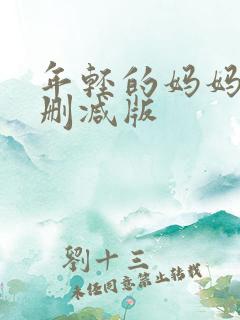 年轻的妈妈
删减版
劉十三
未经同意禁止转载